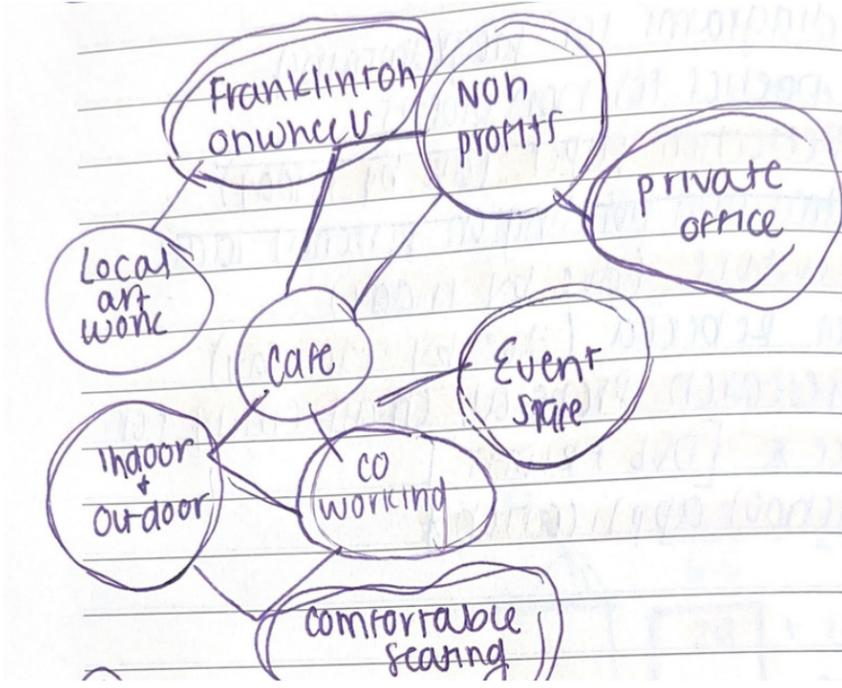 Franklinton
onwheels
Non
profits
private
office
Local
art
work
Cafe
Event
space
Indoor
+
Outdoor
co
working
comfortable
seating